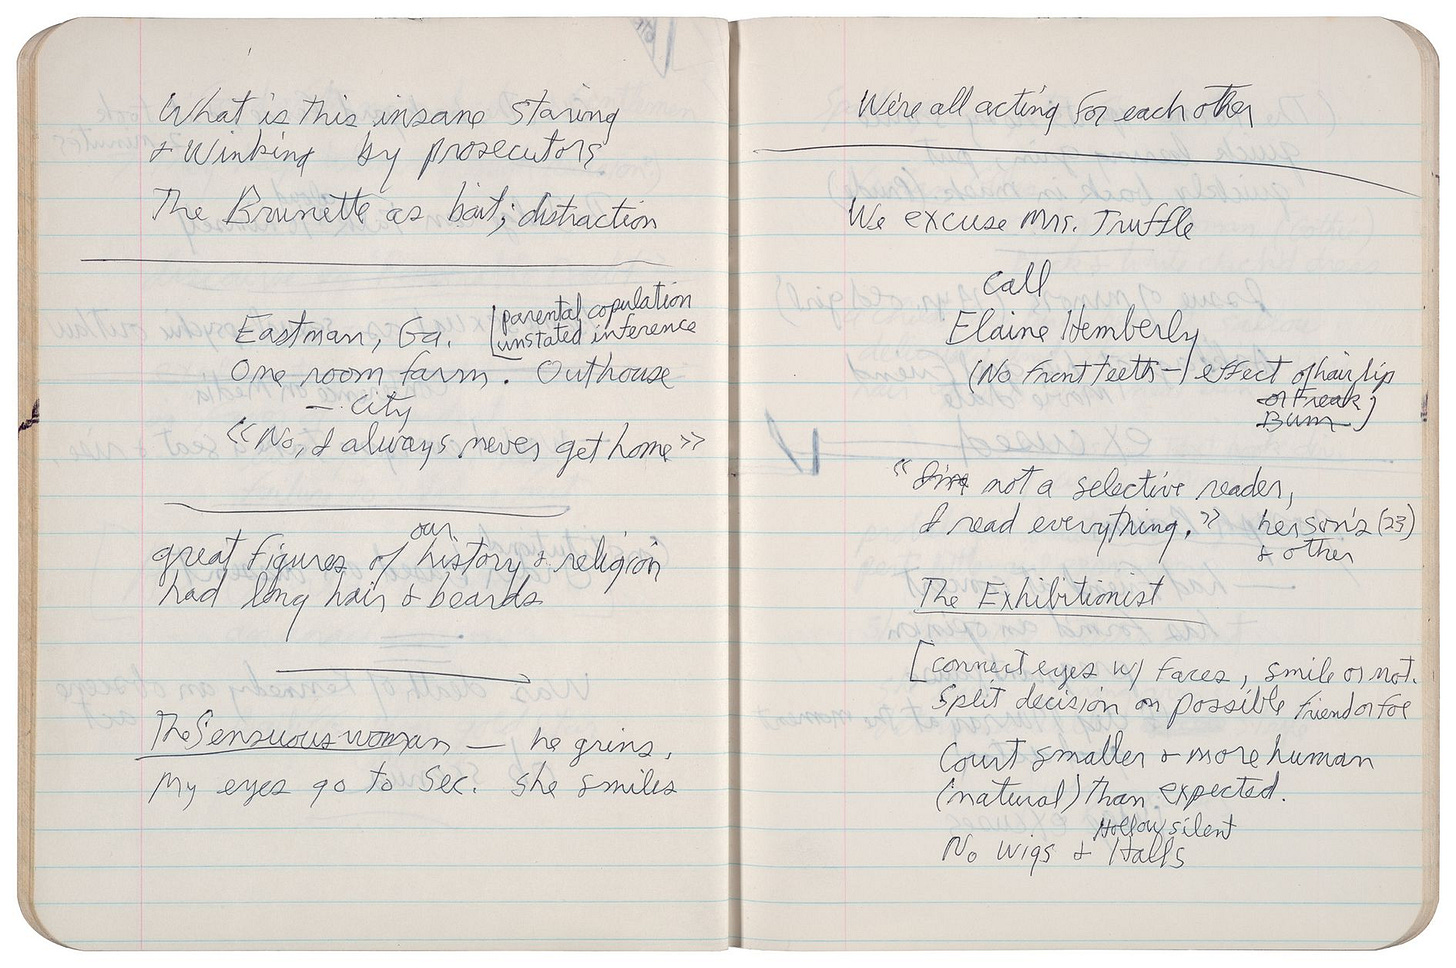 What is this insane staring
& winking by prosecutors
The Brunette as bait; distraction
Eastman, Ga. [parental copulation
unstated inference
One room farm. Outhouse
— city
“No, I always never get home”
great figures of our history & religion
had long hair & beards
The Sensuous woman — he grins,
My eyes go to Sec. she smiles
We're all acting for each other
We excuse Mrs. Truffle
call
Elaine Hemberly
(No Front teeth — effect of hair lip
or Freak
Bum)
“ not a selective reader,
I read everything.” her son's (23)
& other
The Exhibitionist
[connect eyes w/ Faces, smile or not.
Split decision on possible friend or foe
Court smaller & more human
(natural) than expected.
Hollow silent
No wigs & Halls